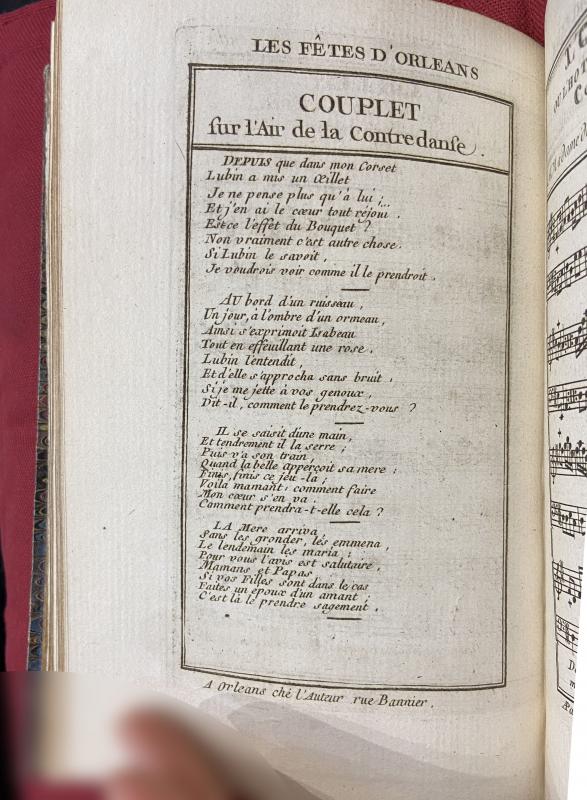 LES FÊTES D'ORLEANS
COUPLET
sur l'Air de la Contredanse.
DEPUIS que dans mon Corset
Lubin a mis un Œillet
Je ne pense plus qu'à lui ;
Et j'en ai le cœur tout réjoui .
Est ce l'effet du Bouquet ?
Non vraiment c'est autre chose .
Si Lubin le savoit ,
Je voudrois voir comme il le prendroit .
AU bord d'un ruisseau,
Un jour, à l'ombre d'un ormeau,
Ainsi s'exprimoit Isabeau
Tout en effeuillant une rose .
Lubin l'entendit ,
Et d'elle s'approcha sans bruit ,
Si je me jette à vos genoux ,
Dit-il, comment le prendrez-vous ?
IL se saisit d'une main,
Et tendrement il la serre ;
Puis va son train,
Quand la belle apperçoit sa mere ;
Finis, finis ce jeu-là ;
Voila mamant, comment faire
Mon cœur s'en va
Comment prendra-t-elle cela ?
LA Mere arriva
Sans les gronder, lés emmena,
Le lendemain les maria ;
Pour vous l'avis est salutaire,
Mamans et Papas
Si vos Filles sont dans le cas
Faites un epoux d'un amant ;
C'est là le prendre sagement .
A Orleans ché l'Auteur rue Bannier .